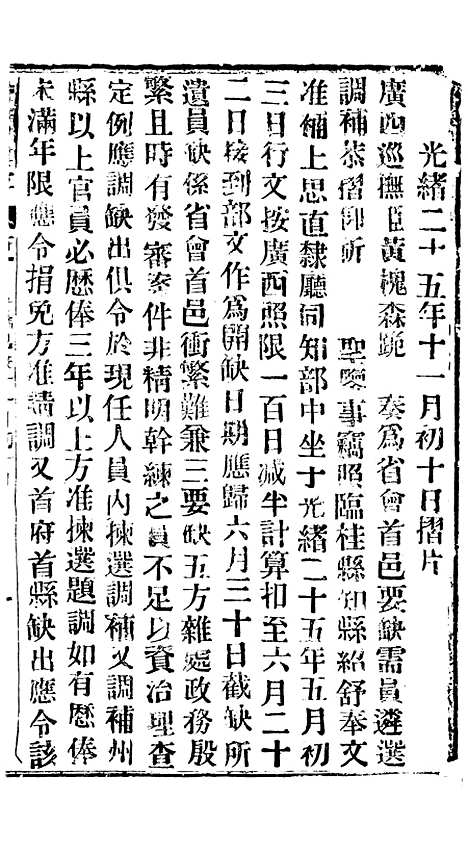 光緒二十五年十一月初十日摺片
廣西巡撫臣黃槐森跪　奏為省會首邑要缺需員遴選
調補恭摺仰祈　聖鑒事竊照臨桂縣知縣紹舒奉文
准補上思直隸廳同知部中坐于光緒二十五年五月初
三日行文按廣西照限一百日減半計算扣至六月二十
二日接到部文作為開缺日期應歸六月三十日截缺所
遺員缺係省會首邑衝繁難兼三要缺五方雜處政務殷
繁且時有發審案件非精明幹練之員不足以資治理查
定例應調缺出俱令於現任人員內揀選調補又調補州
縣以上官員必歷俸三年以上方准揀選題調如有歷俸
未滿年限應令捐免方准請調又首府首縣缺出應令該